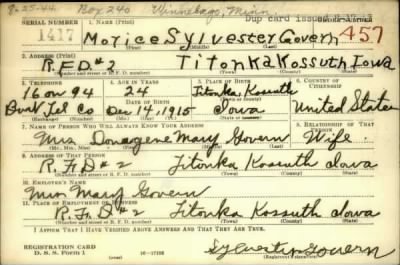 8-25-44. Box 240 Winnebago, Minn. Dup card issued
SERIAL NUMBER 1. NAME (Print) ORDER NUMBER
1417 Morice Sylvester Govern 457
2. ADDRESS (Print)
R.F.D #2 Titonka Kossuth Iowa
(Number and street or R. F. D. number) (Town) (County) (State)
3. TELEPHONE 4. AGE IN YEARS 5. PLACE OF BIRTH 6. COUNTRY OF CITIZENSHIP
16 on 94 24 Titonka Kossuth
DATE OF BIRTH
Tel Co Dec 14, 1915 Iowa United States
7. NAME OF PERSON WHO WILL ALWAYS KNOW YOUR ADDRESS 8. RELATIONSHIP OF THAT PERSON
Mrs Donagene Mary Govern Wife
(Mr., Mrs., Miss) (First) (Middle) (Last)
9. ADDRESS OF THAT PERSON
R. F D #2 Titonka Kossuth Iowa
(Number and street or R. F. D. number) (Town) (County) (State)
10. EMPLOYER'S NAME
Mrs Mary Govern
11. PLACE OF EMPLOYMENT OR BUSINESS
R. F. D #2 Titonka Kossuth Iowa
(Number and street or R. F. D. number) (Town) (County) (State)
I AFFIRM THAT I HAVE VERIFIED ABOVE ANSWERS AND THAT THEY ARE TRUE.
REGISTRATION CARD
D. S. S. Form 1 16-17105
Sylvester Govern